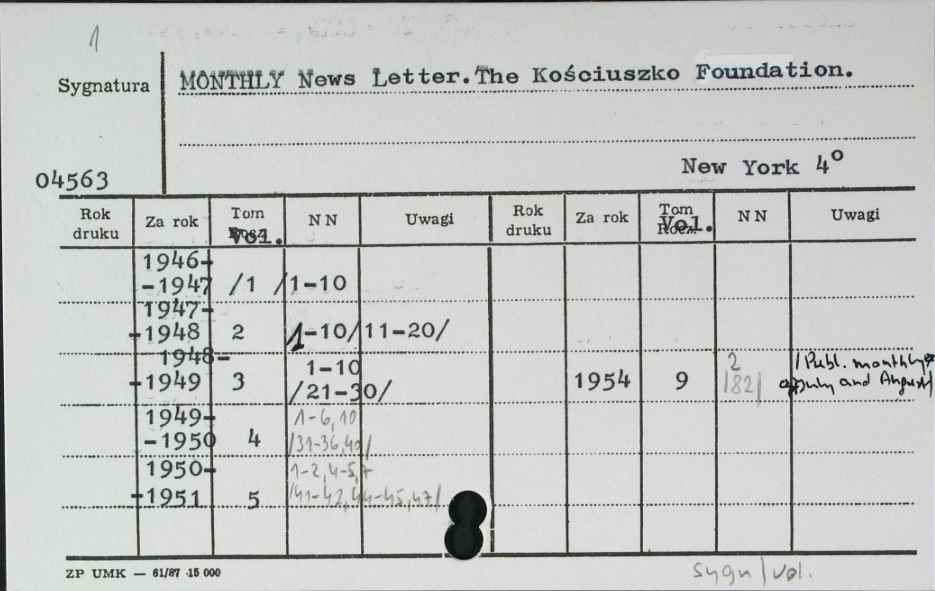 1
Sygnatura
MONTHLY News Letter. The Kościuszko Foundation.
New York 4°
04563
Rok druku Za rok Tom Vol. NN Uwagi Rok druku Za rok Tom Vol. NN Uwagi
1946-
-1947 /1 /1-10
1947-
-1948 2 1-10/11-20/
1948-
-1949 3 1-10
/21-30/
1954 9 2
/82/
/Publ. monthly
July and August/
1949-
-1950 4 1-6,10
/31-36,40/
1950-
-1951 5 1-2,4-5,7
/41-42,44-45,47/
ZP UMK — 61/87 -15 000
sygn/vol.